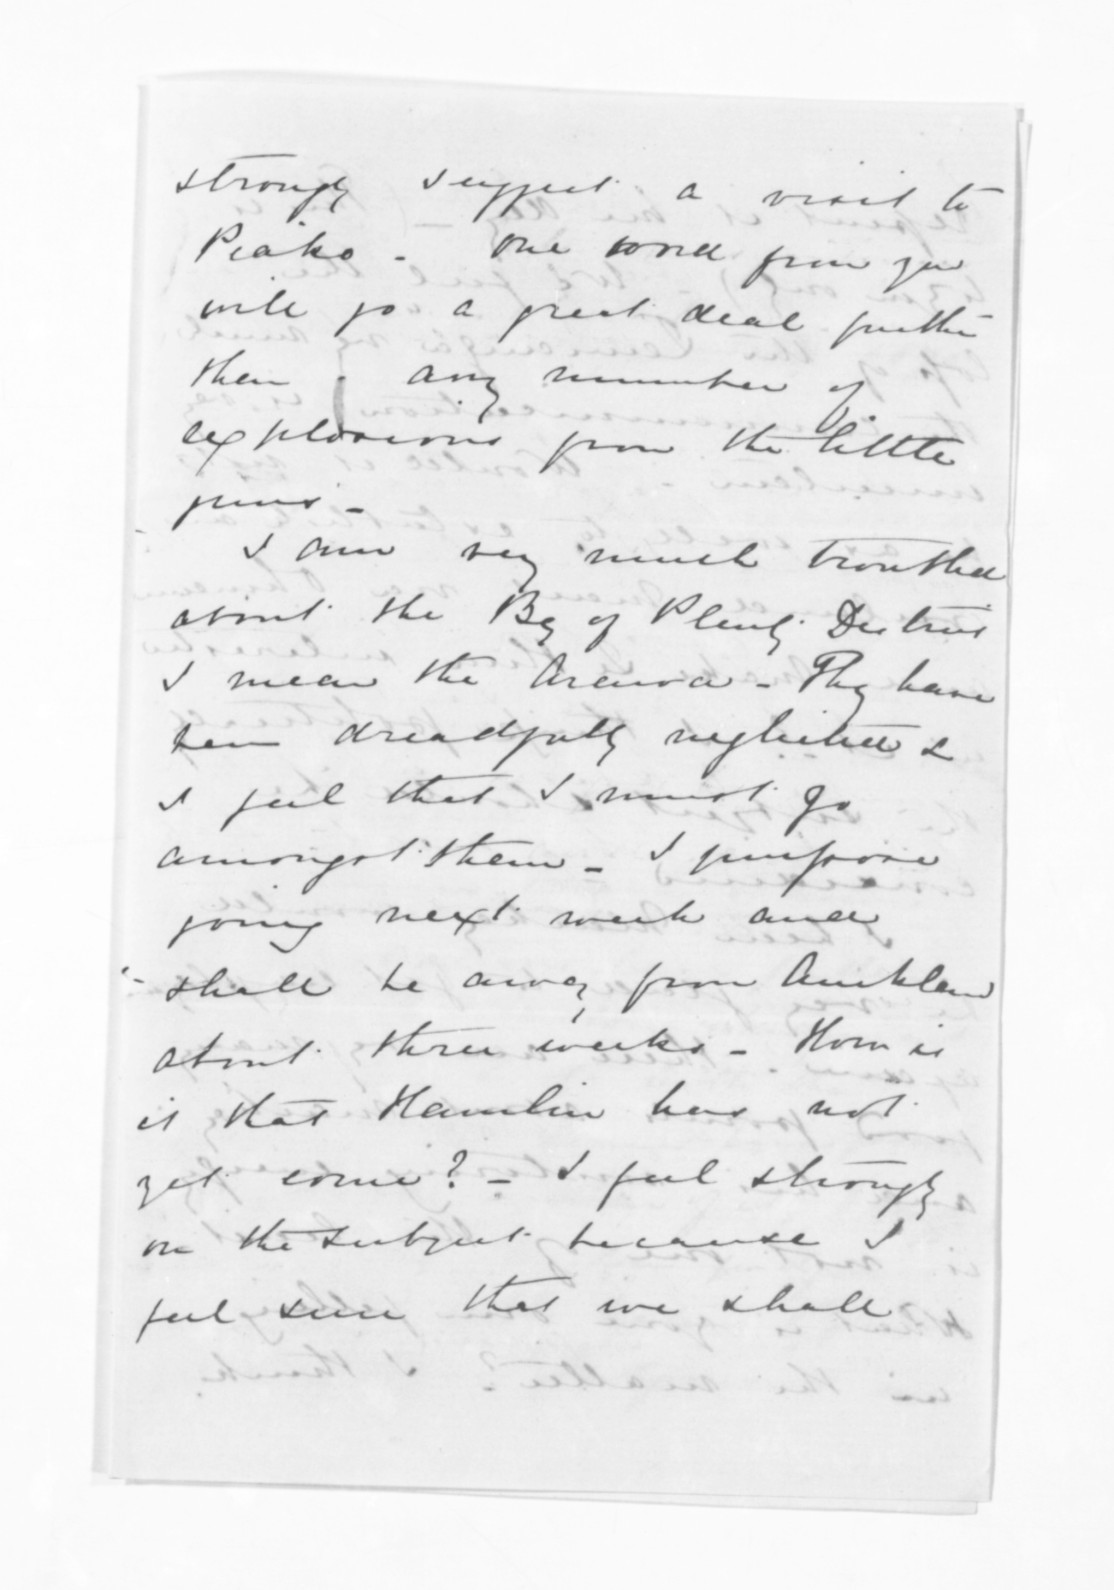 strongly suggest a visit to
Piako - One word from you
will go a great deal further
than any number of
explosions from the little
guns -
I am very much troubled
about the Bay of Plenty District
I mean the Arawa - They have
been dreadfully neglected &
I feel that I must go
amongst them - I purpose
going next week and
shall be away from Auckland
about three weeks - How is
it that Hamlin has not
yet come? - I feel strongly
on the subject because I
feel sure that we shall